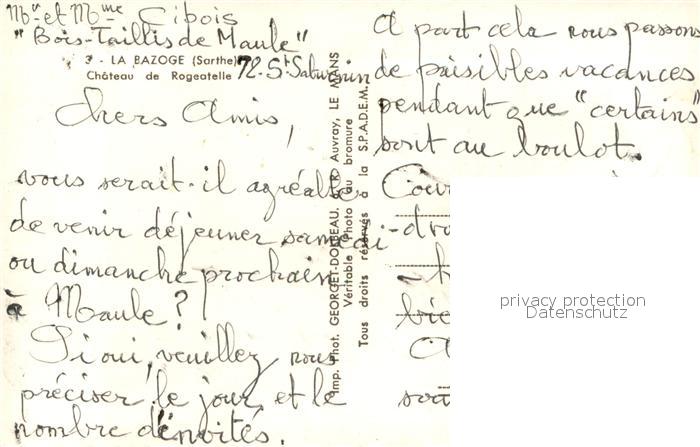 Mr et Mme Cibois
"Bois-Taillis de Maule"
3 - LA BAZOGE (Sarthe)
Château de Rogeatelle
72. St. Saturnin
Chers Amis,
vous serait-il agréable
de venir déjeuner samedi
ou dimanche prochain
à Maule?
Si oui, veuillez nous
préciser le jour et le
nombre d'invités.
Imp. Phot. GEORGET-DOUBEAU. 6, R. Auvray, LE MANS
Véritable Photo au bromure
Tous droits réservés à la S.P.A.D.E.M.
A part cela nous passons
de paisibles vacances
pendant que "certains"
sont au boulot.
privacy protection
Datenschutz